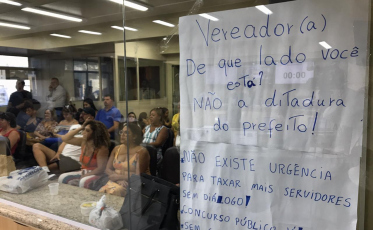 Vereador(a)
De que lado você
está?
NÃO à ditadura
do prefeito!
NÃO EXISTE URGÊNCIA
PARA TAXAR MAIS SERVIDORES
SEM DIÁLOGO!
CONCURSO PÚBLICO
SEM
00:00